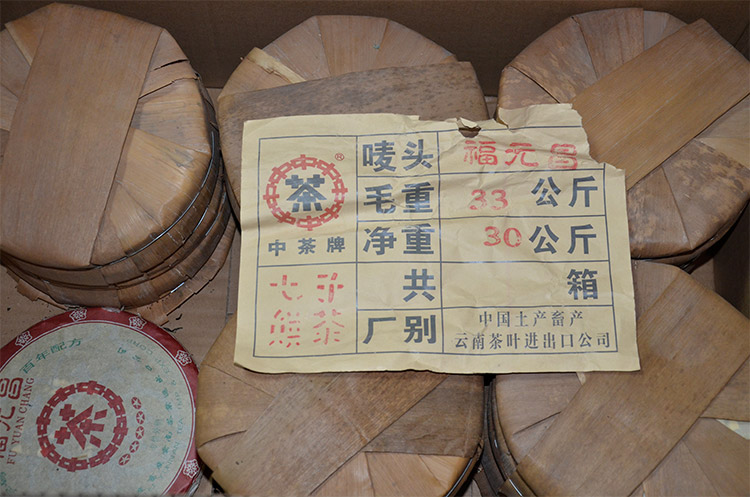 唛头 福元昌
茶
®
中茶牌
毛重 33 公斤
净重 30 公斤
七子
熊茶
共 箱
厂别
中国土产畜产
云南茶叶进出口公司
百年配方
福元昌
FU YUAN CHANG
茶